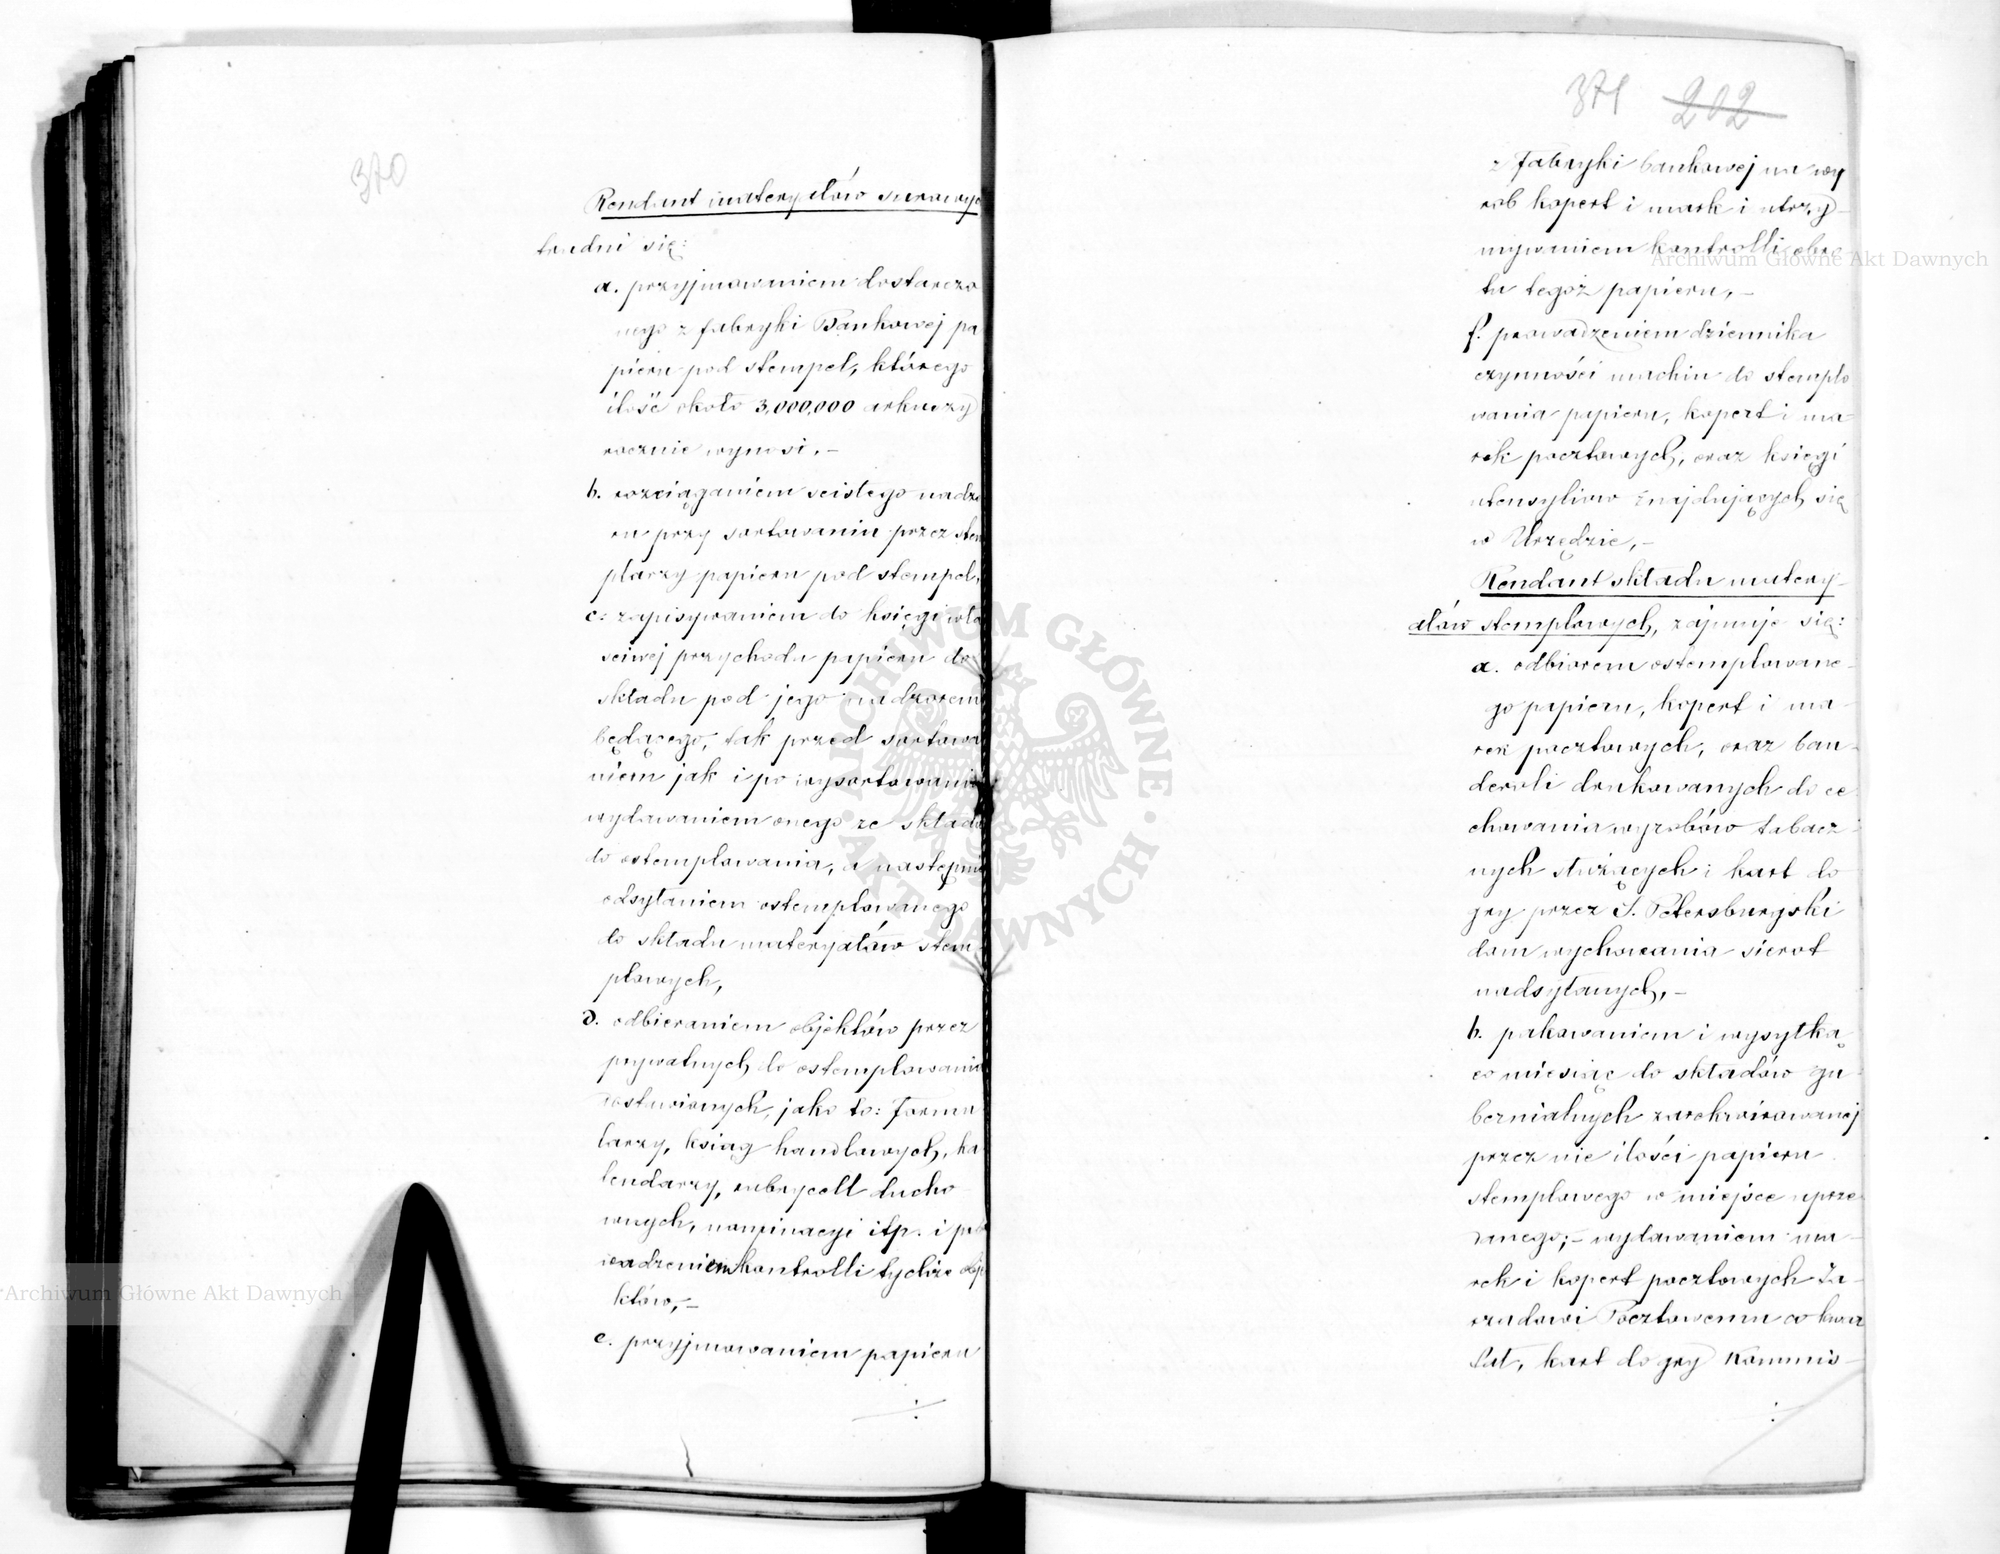 370
Rendant materyałów surowych
trudni się:
a. przyjmowaniem dostarczo
nego z fabryki Bankowej pa
pieru pod stempel, którego
ilość około 3,000,000 arkuszy
rocznie wynosi, –
b. rozciąganiem scisłego nadzo
ru przy sortowaniu przez stem
plarzy papieru pod stempel,
c: zapisywaniem do księgi wła
sciwej przychodu papieru do
składu pod jego nadzorem
będącego, tak przed sortowa
niem jak i po wysortowaniu
wydawaniem onego ze składu
do ostemplowania, a następnie
odsyłaniem ostemplowanego
do składu materyałów stem-
plowych,
d. odbieraniem objektów przez
prywatnych do ostemplowania
dostawionych, jako to: Formu
larzy, ksiąg handlowych, ka
lendarzy, rubrycell ducho
wnych, nominacyi itp. i pro
wadzeniem kontrolli tychże obje
któw, –
e. przyjmowaniem papieru
371 202
z fabryki bankowej na wy
rób kopert i mark i utrzy-
mywaniem kontrolli obro
tu tegoż papieru, –
f. prowadzeniem dziennika
czynności machin do stemplo
wania papieru, kopert i ma-
rek pocztowych, oraz księgi
utensyliów znajdujących się
w Urzędzie, –
Rendant składu matery-
ałów stemplowych, zajmuje się:
a. odbiorem ostemplowane-
go papieru, kopert i ma-
rek pocztowych, oraz ban-
deroli drukowanych do ce
chowania wyrobów tabacz-
nych służących i kart do
gry przez S. Petersburgski
dom wychowania sierot
nadsyłanych, –
b. pakowaniem i wysyłką
co miesiąc do składów gu-
bernialnych zarekwirowanej
przez nie ilości papieru
stemplowego w miejsce uprze
danego; – wydawaniem ma-
rek i kopert pocztowych Za-
rządowi Pocztowemu co kwar
tał, kart do gry Kommis-
Archiwum Główne Akt Dawnych
Archiwum Główne Akt Dawnych
ARCHIWUM GŁÓWNE
AKT DAWNYCH